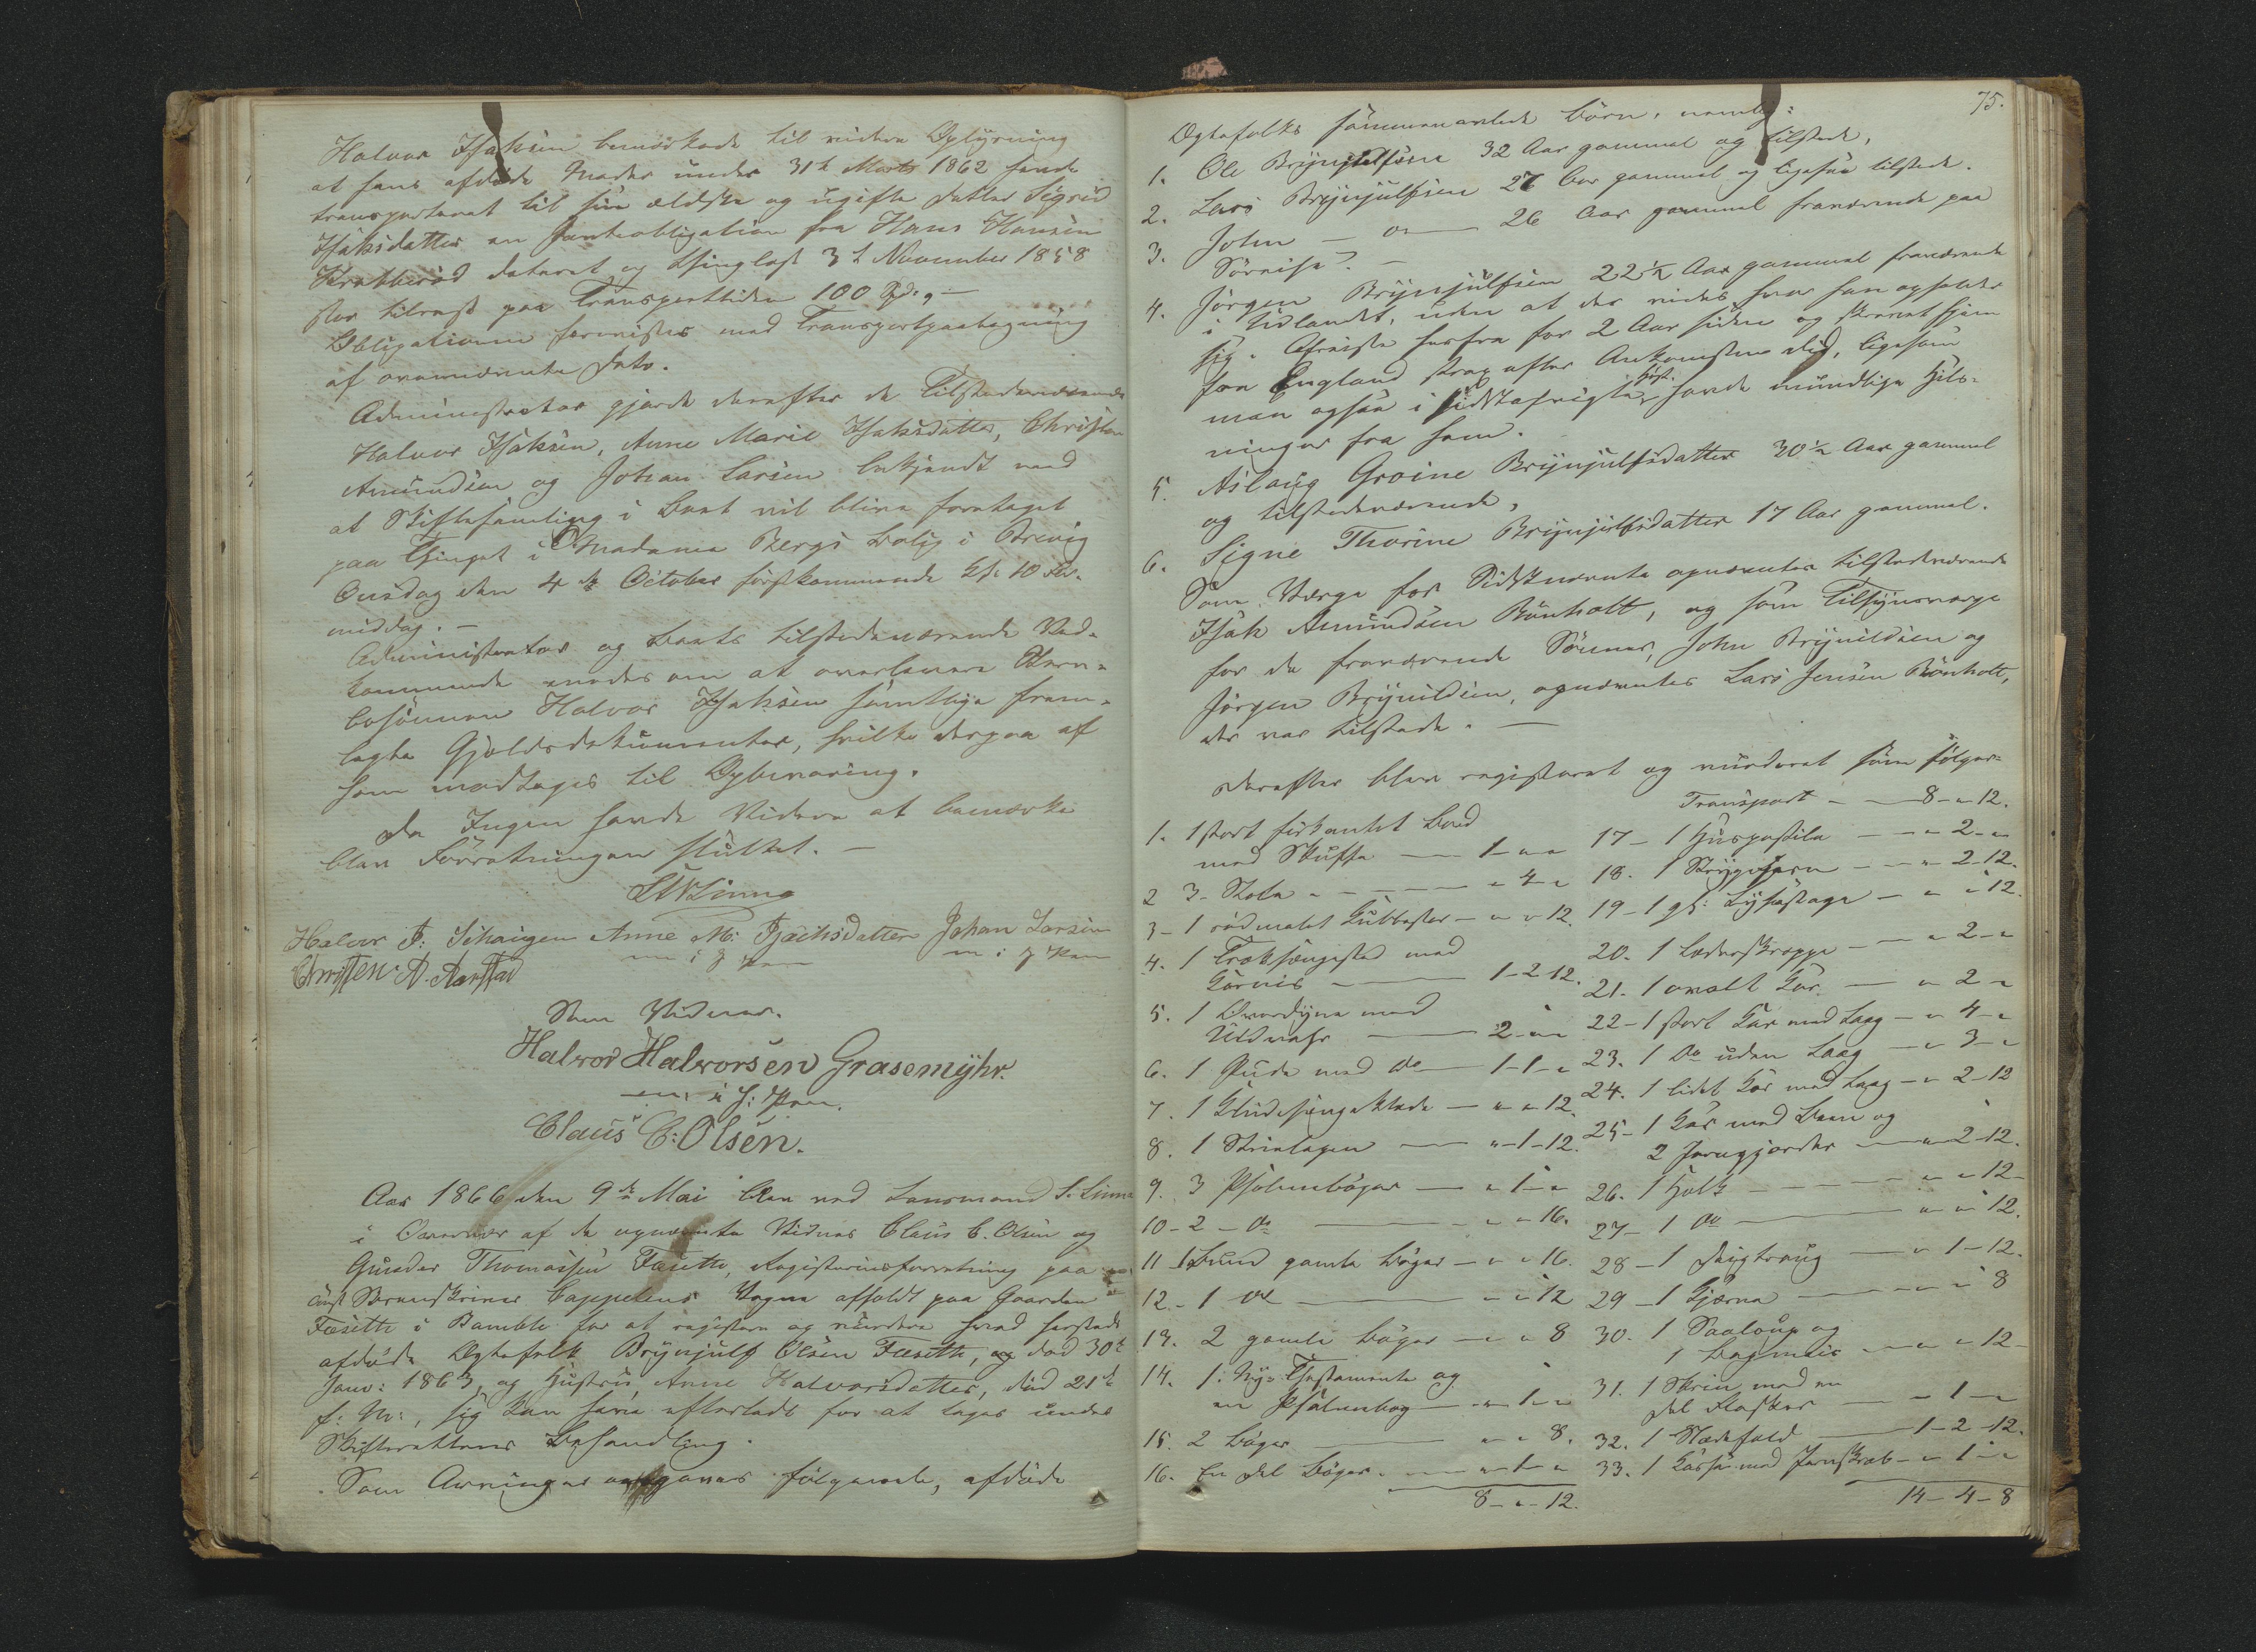 Halvor Isaksen bemærkede til videre Oplysning
at hans afdøde Moder under 31te Marts 1862 havde
transporteret til sin ældste og ugifte Datter Sigrid
Isaksdatter en Panteobligation fra Hans Hansen
Krabberød dateret og thinglæst 3die November 1858
stor tilrest paa Transporttiden 100 Spd., –
Obligationen forevistes med Transportpaategning
af ovennævnte Dato.
Administrator gjorde derefter de Tilstedeværende
Halvor Isaksen, Anne Marie Isaksdatter, Christen
Amundsen og Johan Larsen bekjendt med
at Skiftesamling i Boet vil blive foretaget
paa Thinget i Madame Bergs Bolig i Brevig
Onsdag den 4de October førstkommende Kl. 10 For-
middag. –
Administrator og Boets tilstedeværende Ved-
kommende enedes om at overlevere Stervbo-
bosønnen Halvor Isaksen samtlige frem-
lagte Gjeldsdokumenter, hvilke derpaa af
ham modtoges til Opbevaring.
Da Ingen havde Videre at bemærke
blev Forretningen sluttet. –
S. Linna
Halvor I: Schaugen Anne M: Isachsdatter Johan Larsen
m: i P Pen m: i P Pen
Christen A. Aarstad
Som Vidner.
Halvor Halvorsen Grasemÿhr.
m: i P: Pen.
Claus C: Olsen.
Aar 1866 den 9de Mai blev ved Lensmand S. Linna
i Overvær af de opnævnte Vidner Claus C. Olsen og
Gunder Thomassen Fæsette, Registreringsforretning paa
const Sorenskriver Cappelens Vegne afholdt paa Gaarden
Fæsette i Bamble for at registrere og vurdere hvad herstede
afdøde Ægtefolk Brynjulf Olsen Fæsette, død 30te
Janr: 1863, og Hustru Anne Halvorsdatter, død 21de
f: M:, sig kan have efterladt for at tages under
Skifterettens Behandling.
Som Arvinger opgaves følgende, afdøde
75.
Ægtefolks sammenavlede børn, nemlig:
1. Ole Brynjulfsen 32 Aar gammel og tilstede,
2. Lars Brynjulfsen 27 Aar gammel og ligesaa tilstede.
3. John – do – 26 Aar gammel fraværende paa
Søreise. –
4. Jørgen Brynjulfsen 22 1/2 Aar gammel fraværende
i Udlandet, uden at der vides hvor han opholder
sig. Afreiste herfra for 2 Aar siden og skrevet hjem
fra England strax efter Ankomsten did, ligesom
man ogsaa i sidstafvigte Høst havde mundtlige Hils-
ninger fra ham.
5. Aslaug Groine Brynjulfsdatter 30 1/2 Aar gammel
og tilstedeværende,
6. Signe Thorine Brynjulfsdatter 17 Aar gammel.
Som Værge for Sidstnævnte opnævntes tilstedeværende
Isak Amundsen Rønholt, og som Tilsynsværge
for de fraværende Sønner, John Brynildsen og
Jørgen Brynildsen, opnævntes Lars Jensen Rønholt,
der var tilstede. –
Derefter blev registreret og vurderet som følger:
1. 1 stort firkantet Bord
med Skuffe – 1 – " – "
2 3 Stole – " – 4 – "
3 – 1 rødmalet – " – " – 12.
4. 1 Træksengested med
– 1 – 2 – 12.
5. 1 Overdyne med
Uldvahr – 2 – " – "
6. 1 Pude med do – 1 – 1 – "
7. 1 Kludesengeklæde – " – " – 12.
8. 1 Strielagen – " – 1 – 12.
9. 3 Psalmebøger – " – 1 – "
10 – 2 – do – " – " – 16.
11 – 1 Bund gamle bøger – " – " – 16.
12. – 1 do – " – " – 12
13. 2 gamle bøger – " – " – 8
14. 1: Ny-Thestamente og
en Psalmebog – " – 1 – "
15. 2 bøger – " – " – 8.
16. En Del bøger. – " – 1 – "
8 – " – 12.
Transport – 8 – " – 12.
17 – 1 Huspostile – " – 2 – "
18. 1 Strygejern – " – 2 – 12.
19 – 1 gl: Lysestage – " – " – 12.
20. 1 Læderskræppe – " – 2 – "
21. 1 ovalt Kar – " – 2 – "
22 – 1 stort Kar med Laag – " – 4 – "
23. 1 do uden Laag – " – 3 – "
24. 1 lidet Kar med Laag – " – 2 – 12
25 – 1 Kar med Been og
2 Jerngjorder – " – 2 – 12.
26. 1 Holk – " – " – 12 –
27 – 1 do – " – " – 12.
28 – 1 Deigtraug – " – 1 – 12.
29 – 1 Kjærne – " – " – 8
30. 1 Saaloup og
1 Bagmeis – " – " – 12 –
31. 1 Skrin med en
Del Flasker – " – 1 – "
32. 1 – 1 – 2 – 12.
33. 1 med Jernskrab – " – 1 – "
14 – 4 – 8